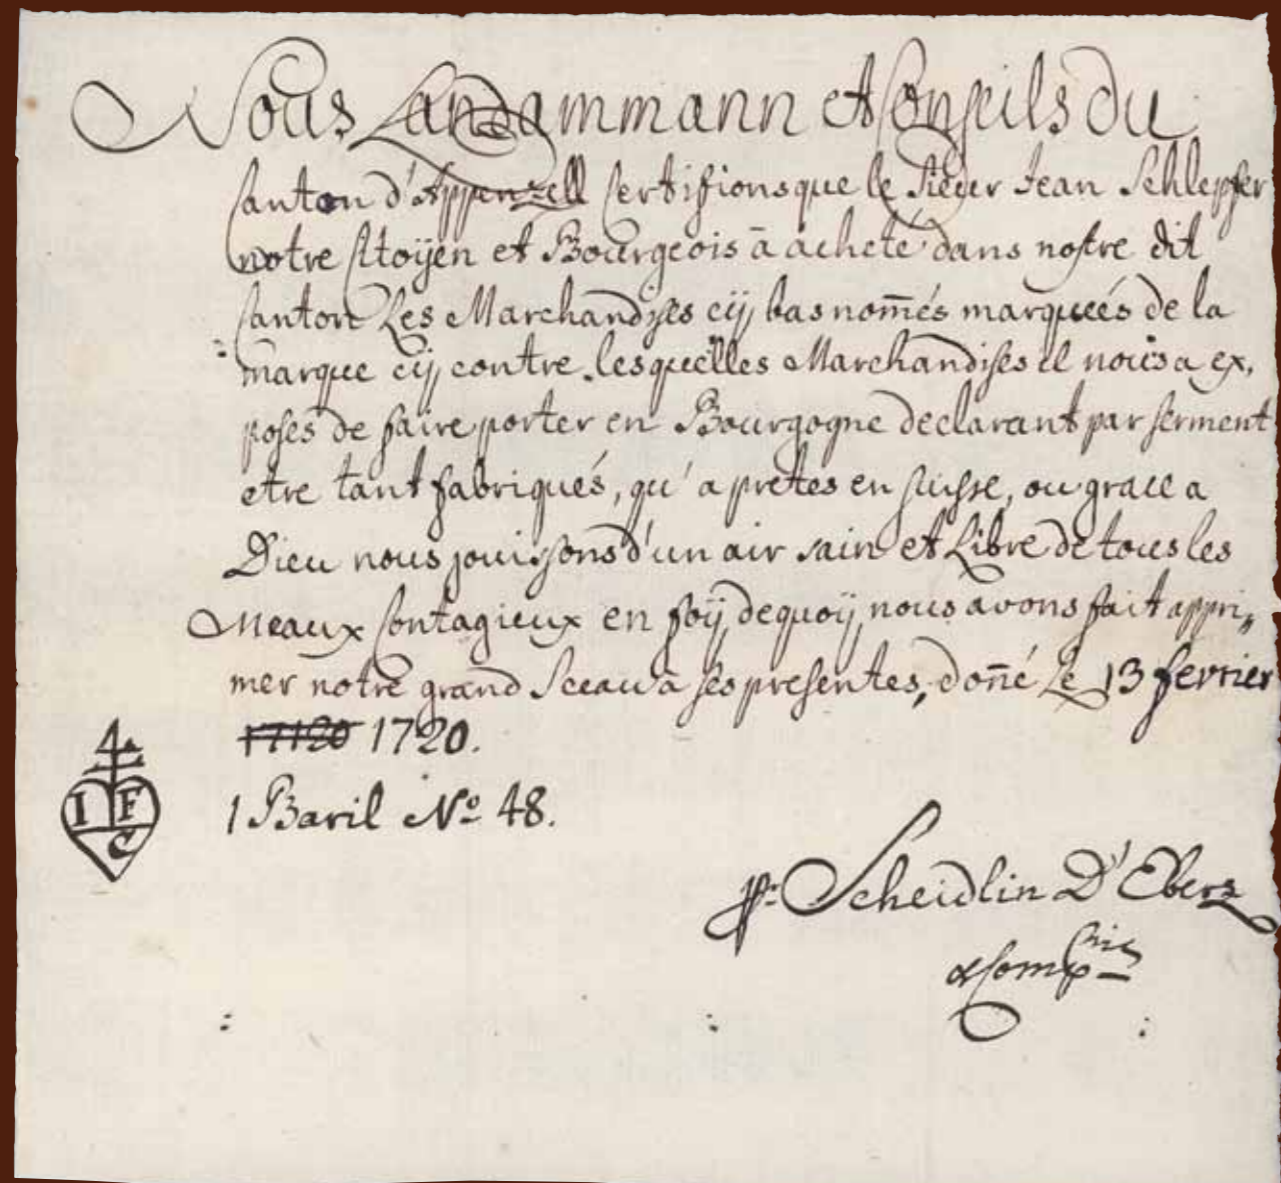 Nous Landammann et Conseils du
Canton d'Appenzell Certifions que le Sieur Jean Schlepfer
notre Citoÿen et Bourgeois à acheté dans nostre dit
Canton Les Marchandises cÿ bas nom̄és marqueés de la
marque cÿ contre lesquelles Marchandises il nous a ex,
posés de faire porter en Bourgogne declarant par serment
etre tant fabriqués, qu'apretes en suisse, ou grace a
Dieu nous jouissons d'un air sain et Libre de tous les
Meaux Contagieux en foÿ dequoÿ nous avons fait appri„
mer notre grand Sceau a ses presentes, doñé Le 13 fevrier
17120 1720.
1 Baril No 48.
4
I F
C
pr. Scheidlin D'Eberz
& Compnie